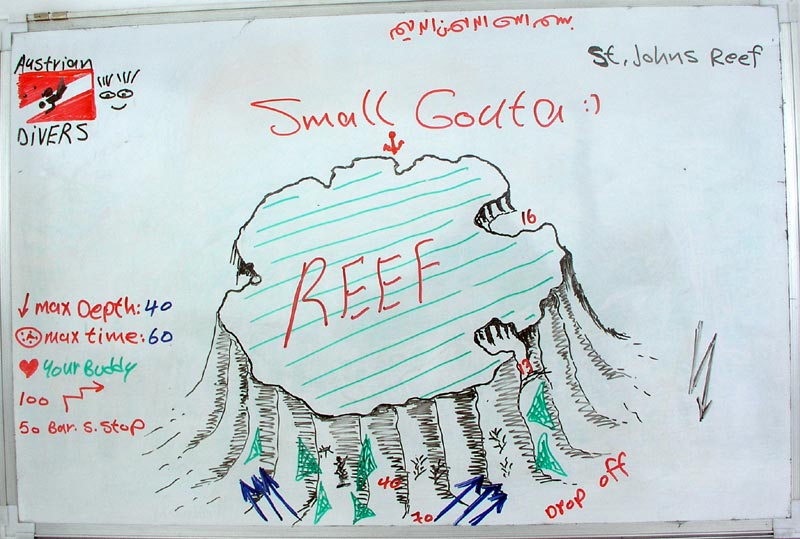 بسم الله الرحمن الرحيم
St. Johns Reef
Austrian
DiVERS
Small Gouta :)
16
REEF
max Depth: 40
max time: 60
Your Buddy
100
50 Bar. S. Stop
13
40
70
Drop off